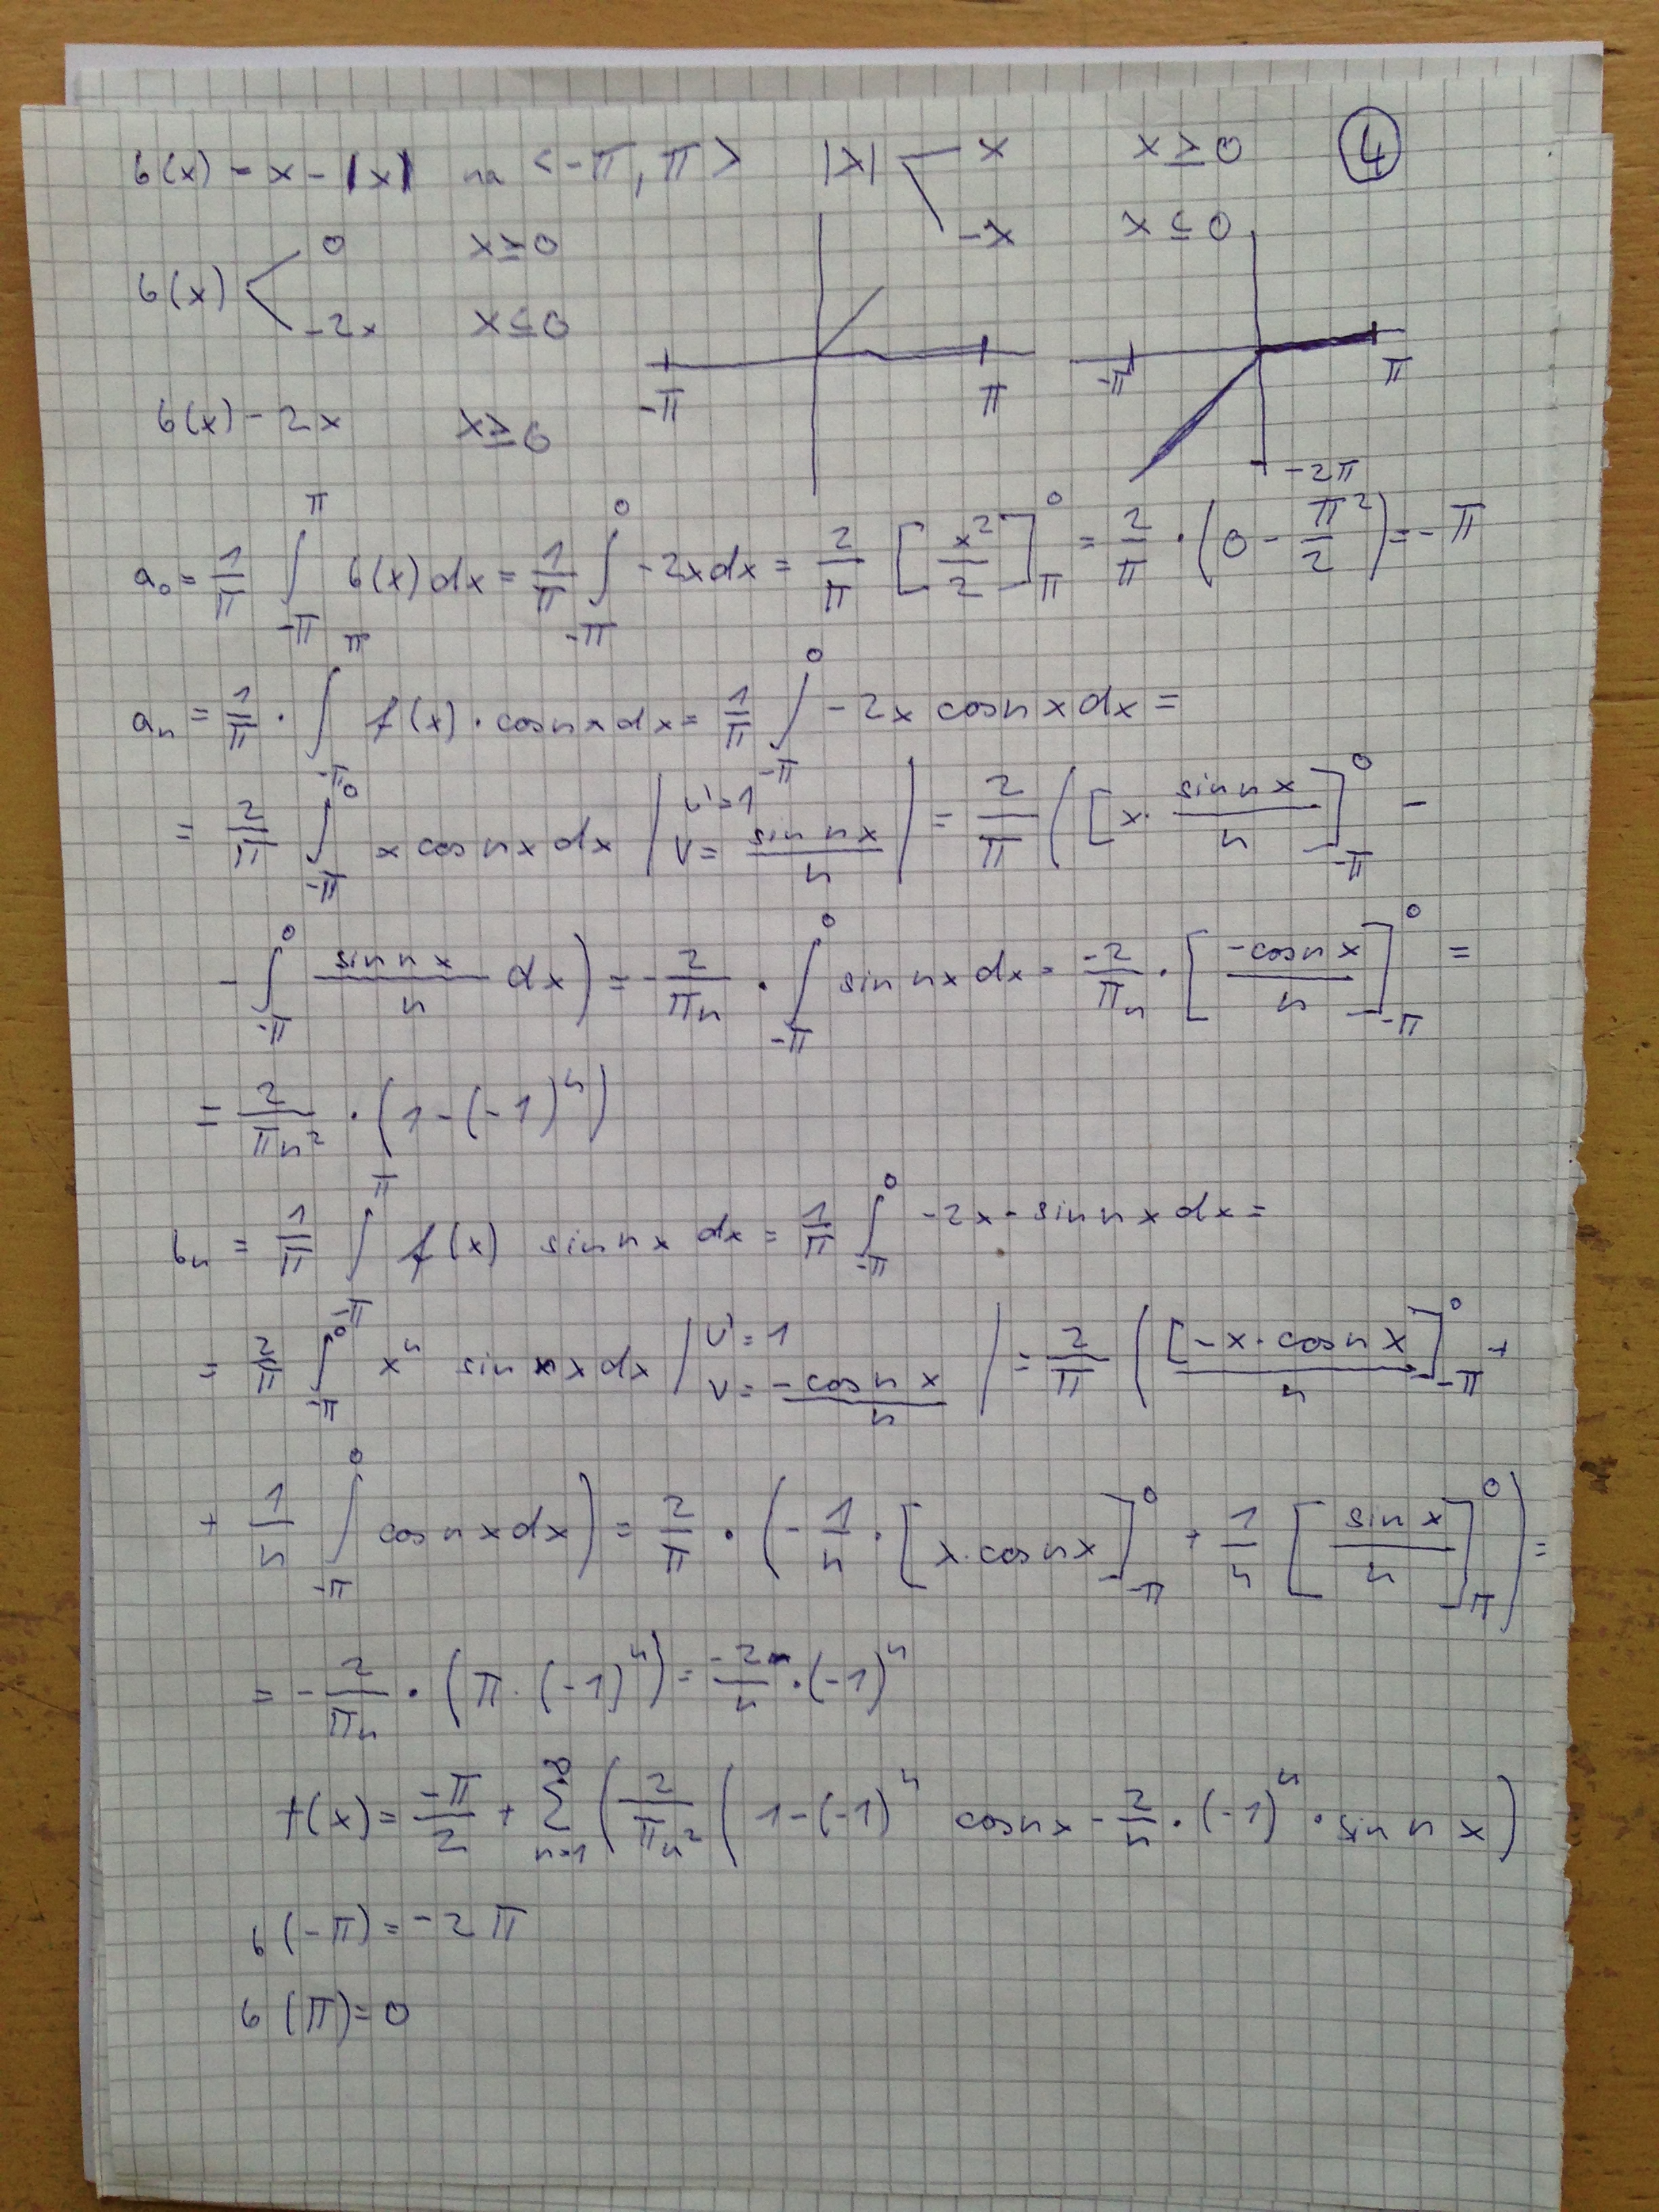 6(x) = x - |x| na <-π, π> |x| x x ≥ 0 ④
-x x ≤ 0
6(x) 0 x ≥ 0
-2x x ≤ 0
-π π -π π
6(x) - 2x x ≥ 0
-2π
a₀ = 1/π ∫_{-π}^{π} 6(x) dx = 1/π ∫_{-π}^{0} -2x dx = 2/π [x²/2]_{π}^{0} = 2/π · (0 - π²/2) = -π
aₙ = 1/π · ∫_{-π}^{π} f(x) · cos nx dx = 1/π ∫_{-π}^{0} -2x cos nx dx =
= 2/π ∫_{-π}^{0} x cos nx dx | u' = 1 v = sin nx/n | = 2/π ([x · sin nx/n]_{-π}^{0} -
- ∫_{-π}^{0} sin nx/n dx) = -2/πn · ∫_{-π}^{0} sin nx dx = -2/πn · [-cos nx/n]_{-π}^{0} =
= 2/πn² · (1 - (-1)ⁿ)
bₙ = 1/π ∫_{-π}^{π} f(x) sin nx dx = 1/π ∫_{-π}^{0} -2x · sin nx dx =
= 2/π ∫_{-π}^{0} xⁿ sin nx dx | u' = 1 v = -cos nx/n | = 2/π ([-x · cos nx/n]_{-π}^{0} +
+ 1/n ∫_{-π}^{0} cos nx dx) = 2/π · (-1/n · [x · cos nx]_{-π}^{0} + 1/n [sin x/n]_{-π}^{0}) =
= -2/πn · (π · (-1)ⁿ) = -2/n · (-1)ⁿ
f(x) = -π/2 + ∑_{n=1}^{∞} (2/πn² (1 - (-1)ⁿ cos nx - 2/n · (-1)ⁿ · sin n x)
6(-π) = -2π
6(π) = 0